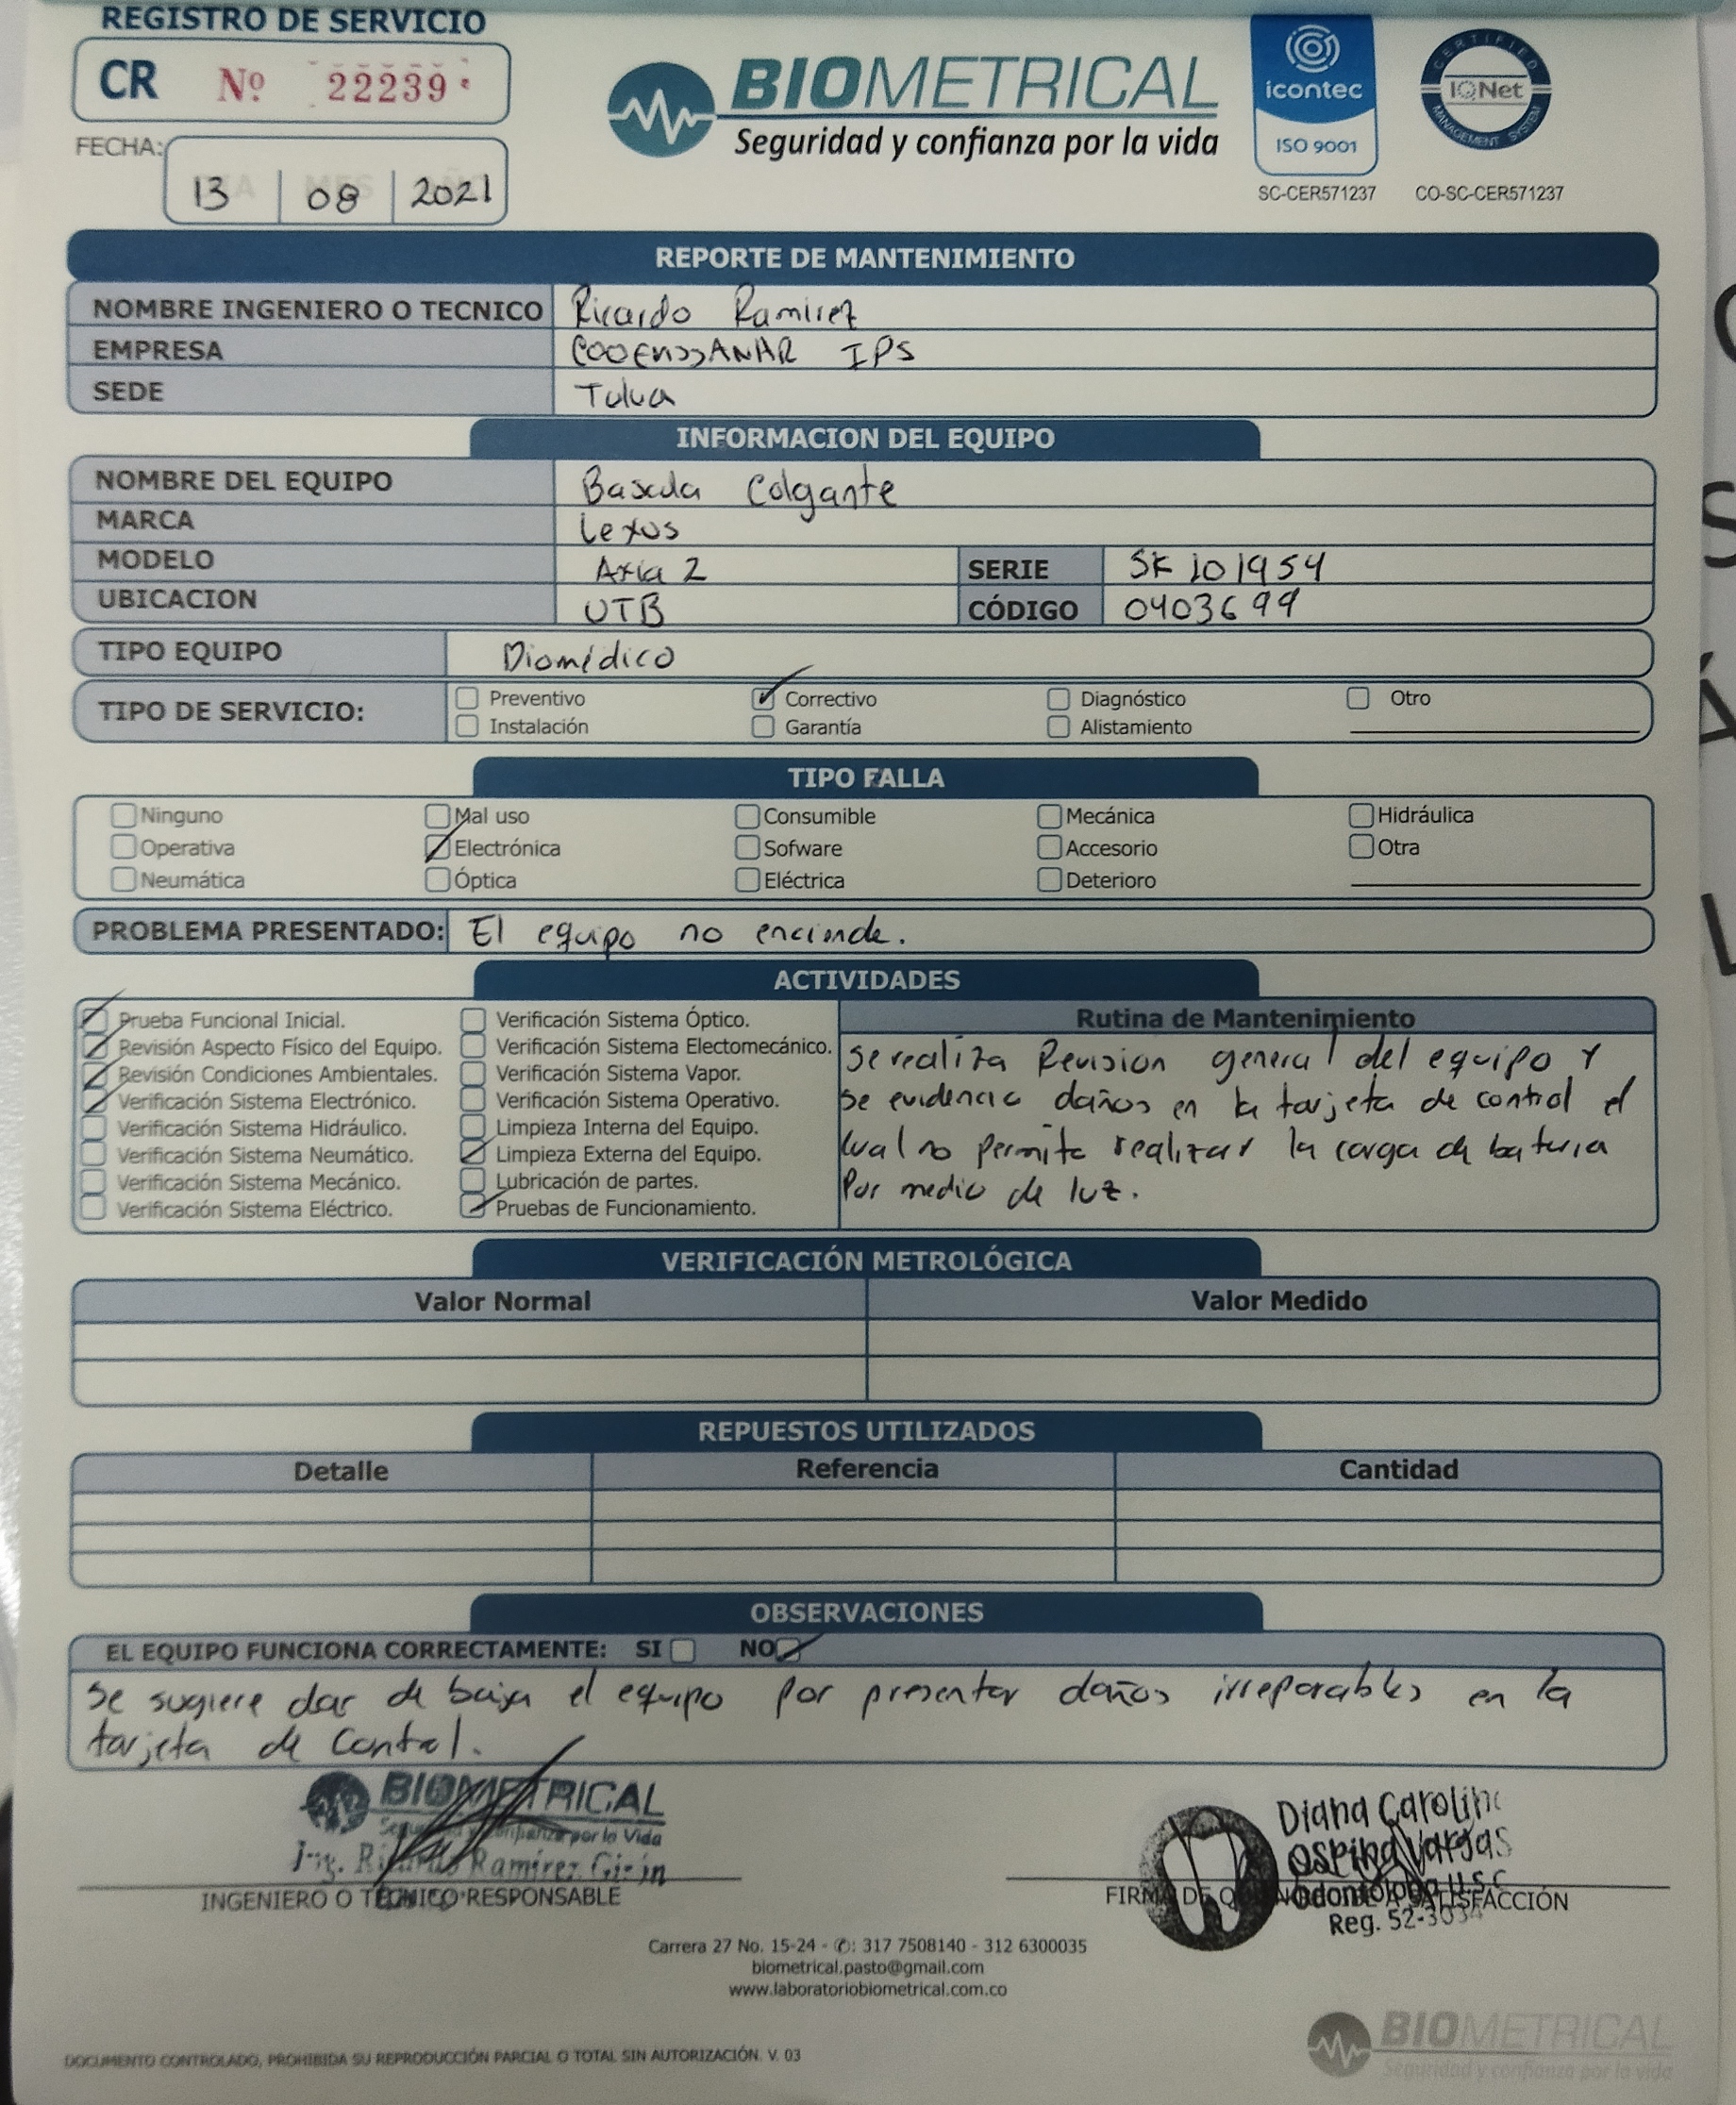 REGISTRO DE SERVICIO
CR Nº 22239
BIOMETRICAL
Seguridad y confianza por la vida
icontec
ISO 9001
SC-CER571237
CERTIFIED
IQNet
MANAGEMENT SYSTEM
CO-SC-CER571237
FECHA: 13 08 2021
REPORTE DE MANTENIMIENTO
NOMBRE INGENIERO O TECNICO Ricardo Ramirez
EMPRESA COOEMSSANAR IPS
SEDE Tulua
INFORMACION DEL EQUIPO
NOMBRE DEL EQUIPO Bascula Colgante
MARCA Lexus
MODELO Axia 2 SERIE SK101954
UBICACION UTB CÓDIGO 0403699
TIPO EQUIPO Biomédico
TIPO DE SERVICIO: Preventivo Correctivo Diagnóstico Otro
Instalación Garantía Alistamiento
TIPO FALLA
Ninguno Mal uso Consumible Mecánica Hidráulica
Operativa Electrónica Sofware Accesorio Otra
Neumática Óptica Eléctrica Deterioro
PROBLEMA PRESENTADO: El equipo no enciende.
ACTIVIDADES
Prueba Funcional Inicial.
Revisión Aspecto Físico del Equipo.
Revisión Condiciones Ambientales.
Verificación Sistema Electrónico.
Verificación Sistema Hidráulico.
Verificación Sistema Neumático.
Verificación Sistema Mecánico.
Verificación Sistema Eléctrico.
Verificación Sistema Óptico.
Verificación Sistema Electomecánico.
Verificación Sistema Vapor.
Verificación Sistema Operativo.
Limpieza Interna del Equipo.
Limpieza Externa del Equipo.
Lubricación de partes.
Pruebas de Funcionamiento.
Rutina de Mantenimiento
se realiza Revision general del equipo y
se evidencia daños en la tarjeta de control el
cual no permite realizar la carga de bateria
Por medio de luz.
VERIFICACIÓN METROLÓGICA
Valor Normal Valor Medido
REPUESTOS UTILIZADOS
Detalle Referencia Cantidad
OBSERVACIONES
EL EQUIPO FUNCIONA CORRECTAMENTE: SI NO
Se sugiere dar de baja el equipo por presentar daños irreparables en la
tarjeta de Control.
BIOMETRICAL
Seguridad y confianza por la Vida
Ing. Ricardo Ramírez Girón
INGENIERO O TÉCNICO RESPONSABLE
Diana Carolina
Ospina Vargas
Odontóloga U.S.C
Reg. 52-3034
FIRMA DE SATISFACCIÓN
Carrera 27 No. 15-24 - ✆: 317 7508140 - 312 6300035
biometrical.pasto@gmail.com
www.laboratoriobiometrical.com.co
BIOMETRICAL
Seguridad y confianza por la vida
DOCUMENTO CONTROLADO, PROHIBIDA SU REPRODUCCIÓN PARCIAL O TOTAL SIN AUTORIZACIÓN. V. 03